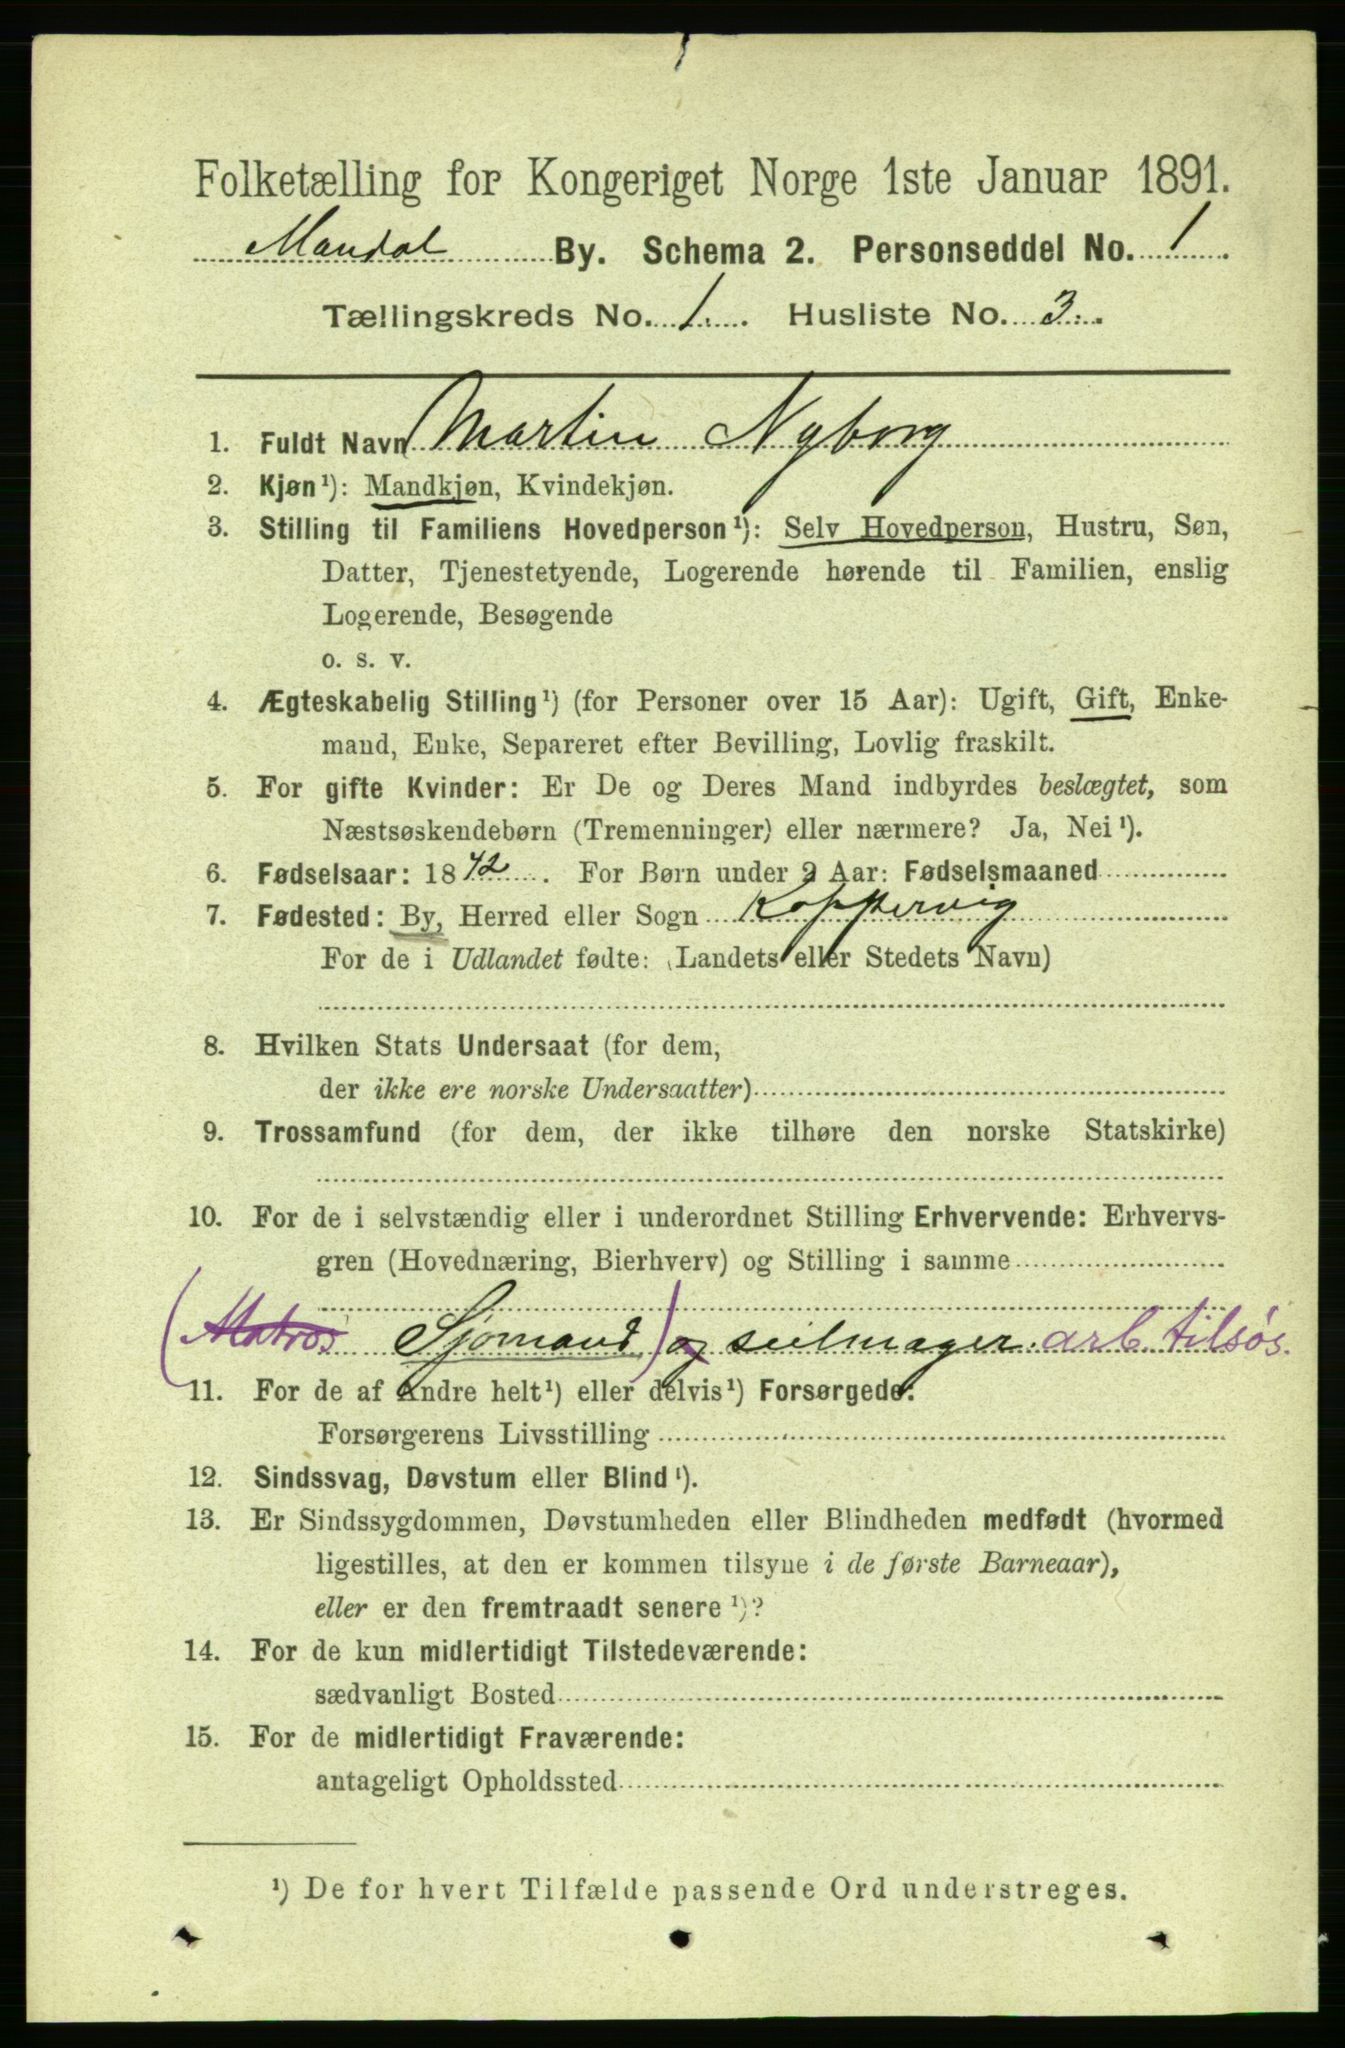 Folketælling for Kongeriget Norge 1ste Januar 1891.
Mandal By. Schema 2. Personseddel No. 1
Tællingskreds No. 1. Husliste No. 3.
1. Fuldt Navn Martin Nyborg
2. Kjøn¹): Mandkjøn, Kvindekjøn.
3. Stilling til Familiens Hovedperson¹): Selv Hovedperson, Hustru, Søn,
Datter, Tjenestetyende, Logerende hørende til Familien, enslig
Logerende, Besøgende
o. s. v.
4. Ægteskabelig Stilling¹) (for Personer over 15 Aar): Ugift, Gift, Enke-
mand, Enke, Separeret efter Bevilling, Lovlig fraskilt.
5. For gifte Kvinder: Er De og Deres Mand indbyrdes beslægtet, som
Næstsøskendebørn (Tremenninger) eller nærmere? Ja, Nei¹).
6. Fødselsaar: 1842. For Børn under 2 Aar: Fødselsmaaned
7. Fødested: By, Herred eller Sogn Koppervig
For de i Udlandet fødte: (Landets eller Stedets Navn)
8. Hvilken Stats Undersaat (for dem,
der ikke ere norske Undersaatter)
9. Trossamfund (for dem, der ikke tilhøre den norske Statskirke)
10. For de i selvstændig eller i underordnet Stilling Erhvervende: Erhvervs-
gren (Hovednæring, Bierhverv) og Stilling i samme
(Matros Sjømand) og seilmager. arb. tilsøs.
11. For de af Andre helt¹) eller delvis¹) Forsørgede:
Forsørgerens Livsstilling
12. Sindssvag, Døvstum eller Blind¹).
13. Er Sindssygdommen, Døvstumheden eller Blindheden medfødt (hvormed
ligestilles, at den er kommen tilsyne i de første Barneaar),
eller er den fremtraadt senere¹)?
14. For de kun midlertidigt Tilstedeværende:
sædvanligt Bosted
15. For de midlertidigt Fraværende:
antageligt Opholdssted
¹) De for hvert Tilfælde passende Ord understreges.